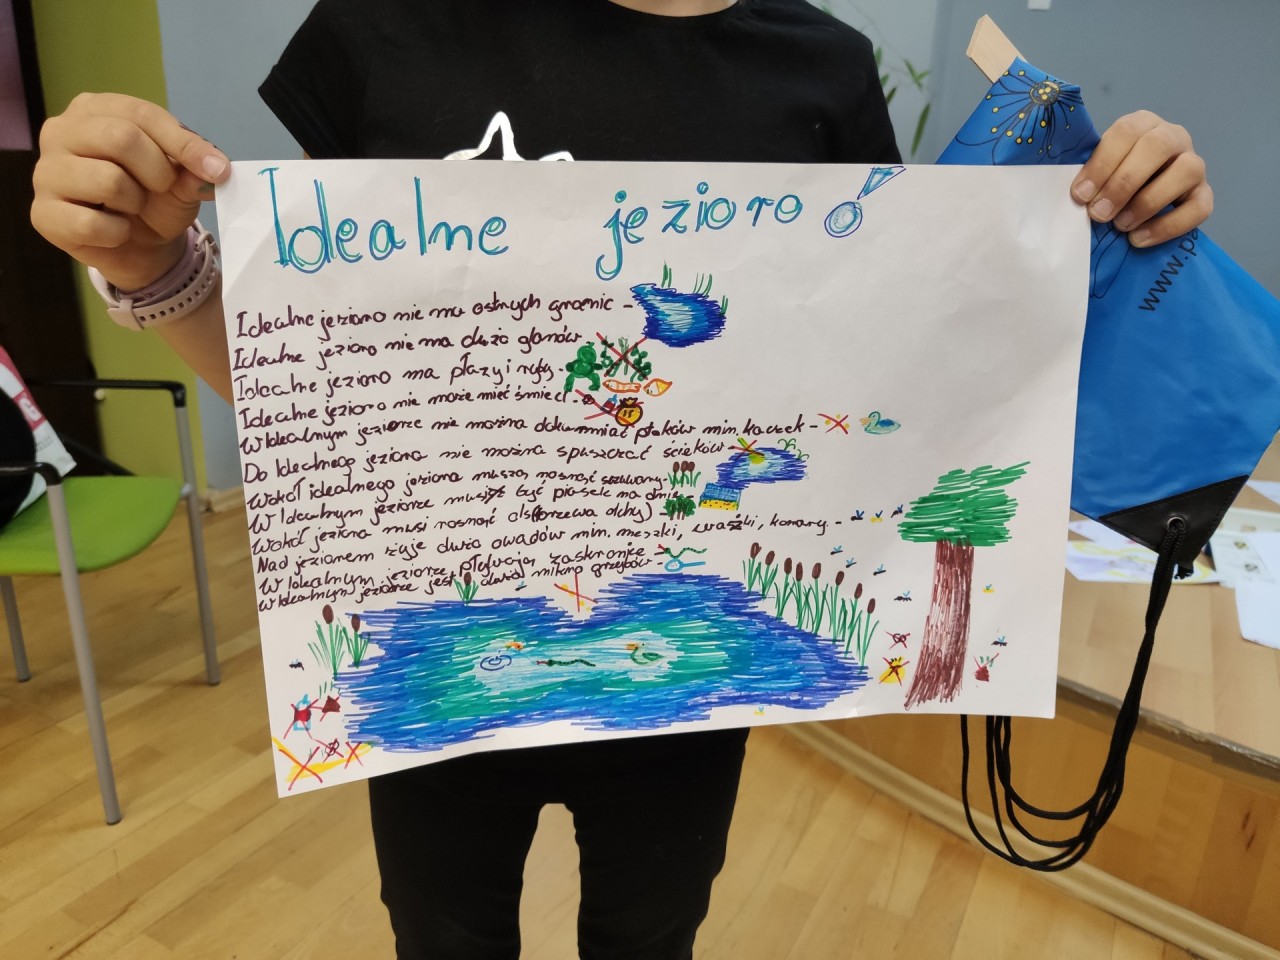 Idealne jezioro!
Idealne jezioro nie ma ostrych granic -
Idealne jezioro nie ma dużo glonów
Idealne jezioro ma płazy i ryby -
Idealne jezioro nie może mieć śmieci -
W Idealnym jeziorze nie można dokarmiać ptaków min. kaczek -
Do Idealnego jeziora nie można spuszczać ścieków
Wokół idealnego jeziora muszą rosnąć szuwary -
W Idealnym jeziorze musi być piasek na dnie
Wokół jeziora musi rosnąć ols (drzewa olchy) -
Nad jeziorem żyje dużo owadów min. meszki, ważki, komary -
W Idealnym jeziorze pływają zaskrońce
W Idealnym jeziorze jest dużo mikro grzybów -
www.pa